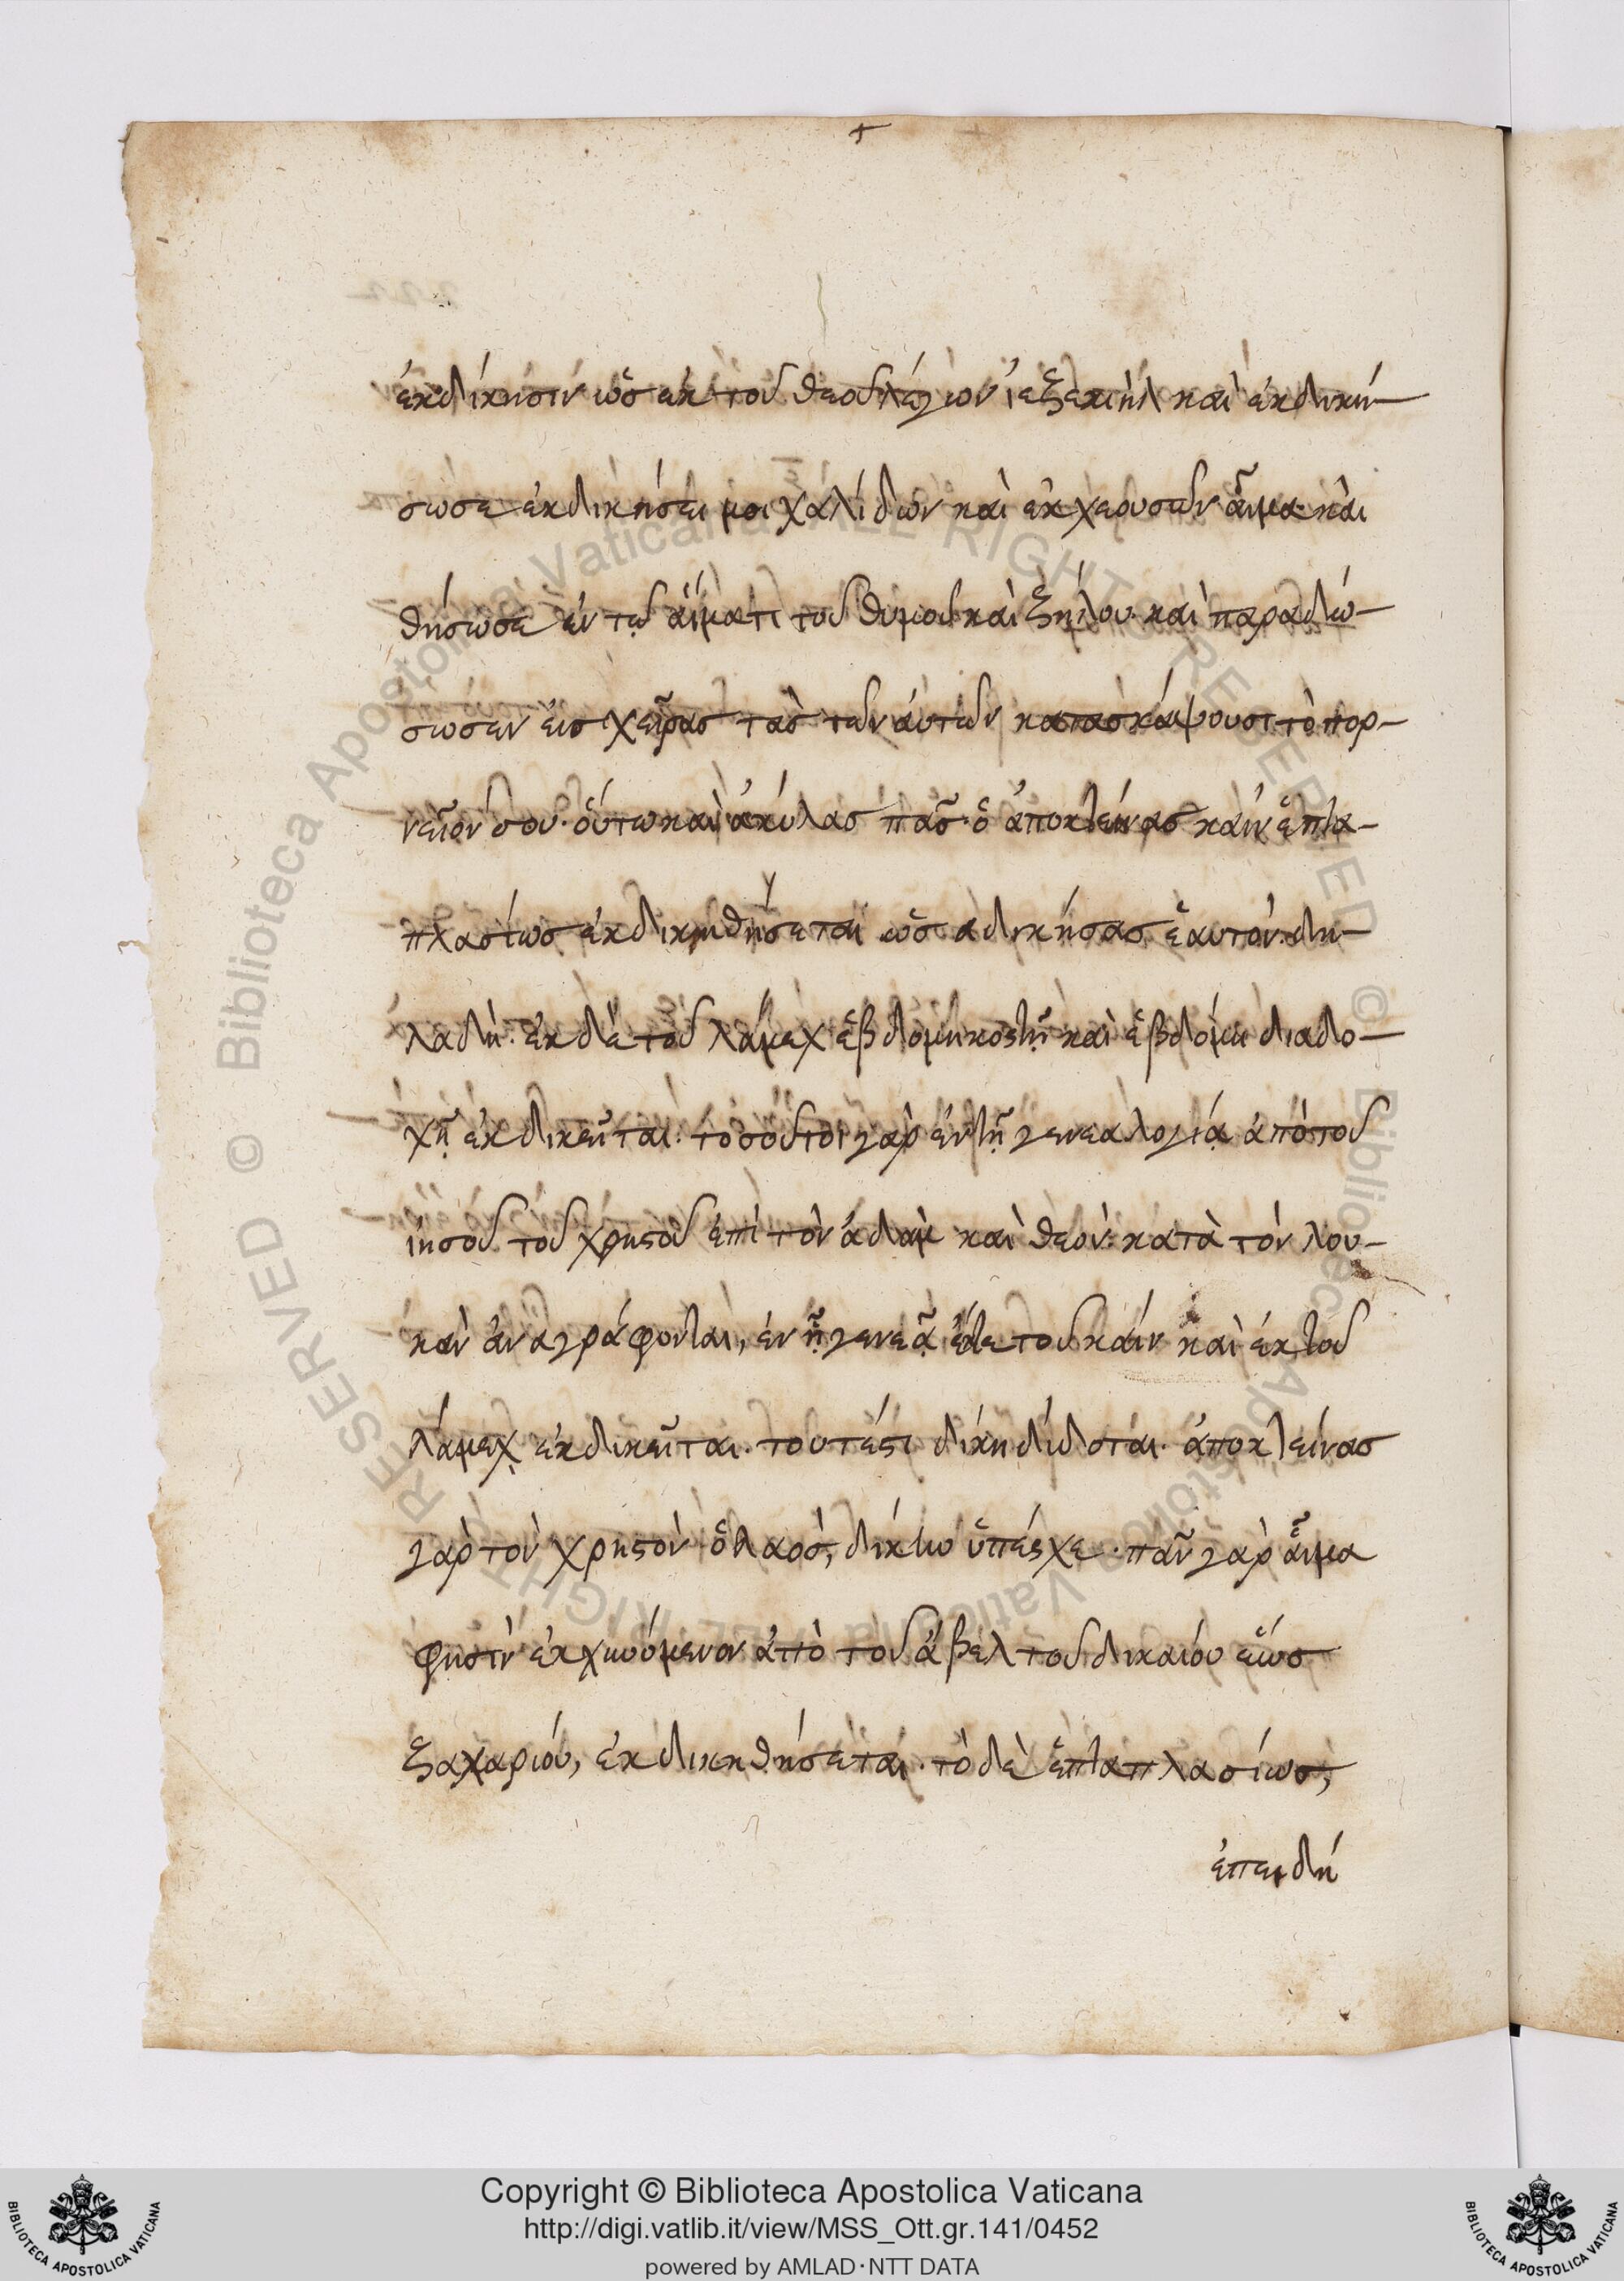 ἐκδίκησιν ὡς ἐκ τοῦ θεοῦ λέγων ἰεζεκιὴλ καὶ ἐκδική-
σωσε ἐκδικήσει μοιχαλίδων καὶ ἐκχεουσῶν αἷμα. καὶ
θήσωσε ἐν τῷ αἵματι τοῦ θυμοῦ καὶ ζήλου. καὶ παραδώ-
σωσεν εἰς χεῖρας τὰς τῶν αὐτῶν κατασκάψουσι τὸ πορ-
νεῖόν σου. οὕτω καὶ ἀκύλας πᾶς ὁ ἀποκτείνας κάϊν ἑπτα-
πλασίως ἐκδικηθήσεται ὡς ἀδικήσας ἑαυτόν. δη-
λαδή. ἐκ δὲ τοῦ λάμεχ ἑβδομηκοστῇ καὶ ἑβδόμη διαδο-
χῇ ἐκδικεῖται. τοσοῦτοι γὰρ ἐν τῇ γενεαλογίᾳ ἀπὸ τοῦ
ἰησοῦ τοῦ χρηστοῦ ἐπὶ τὸν ἀδὰμ καὶ θεόν. κατὰ τὸν λου-
κᾶν ἀναγράφονται, ἐν ᾗ γενεᾷ τοῦ κάϊν καὶ ἐκ τοῦ
λάμεχ ἐκδικεῖται. τουτέστι δίκη δίδοται. ἀποκτείνας
γὰρ τὸν χρηστὸν ὁ λαός, δίκην ὑπέσχε. πᾶν γὰρ αἷμα
φησὶν ἐκχυόμενον ἀπὸ τοῦ ἄβελ τοῦ δικαίου ἕως
ζαχαρίου, ἐκδικηθήσεται. τὸ δὲ ἑπταπλασίως,
ἐπειδή
Copyright © Biblioteca Apostolica Vaticana
http://digi.vatlib.it/view/MSS_Ott.gr.141/0452
powered by AMLAD·NTT DATA